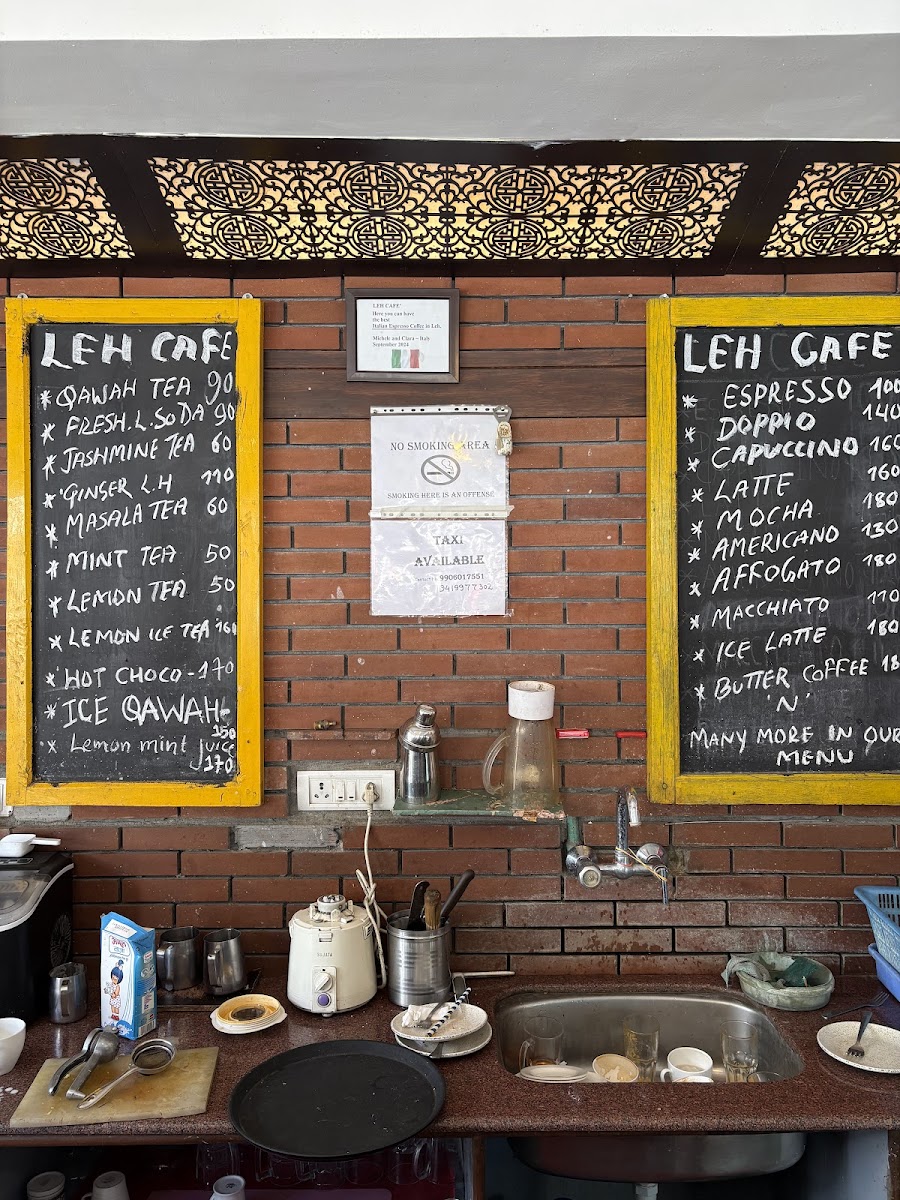 LEH CAFE
* QAWAH TEA 90
* FRESH.L.SODA 90
* JASHMINE TEA 60
* GINGER L.H 110
* MASALA TEA 60
* MINT TEA 50
* LEMON TEA 50
* LEMON ICE TEA 160
* HOT CHOCO - 170
* ICE QAWAH-
150
* Lemon mint juice
170
LEH CAFE'
Here you can have
the best
Italian Espresso Coffee in Leh.
Michele and Clara – Italy
September 2024
NO SMOKING AREA
SMOKING HERE IS AN OFFENSE
TAXI
AVAILABLE
9906017551
9419977302
LEH CAFE
* ESPRESSO 100
* DOPPIO 140
* CAPUCCINO 160
* LATTE 160
* MOCHA 180
* AMERICANO 130
* AFFOGATO 180
* MACCHIATO 110
* ICE LATTE 180
* BUTTER COFFEE 18
'N'
MANY MORE IN OUR
MENU
BAJAJ